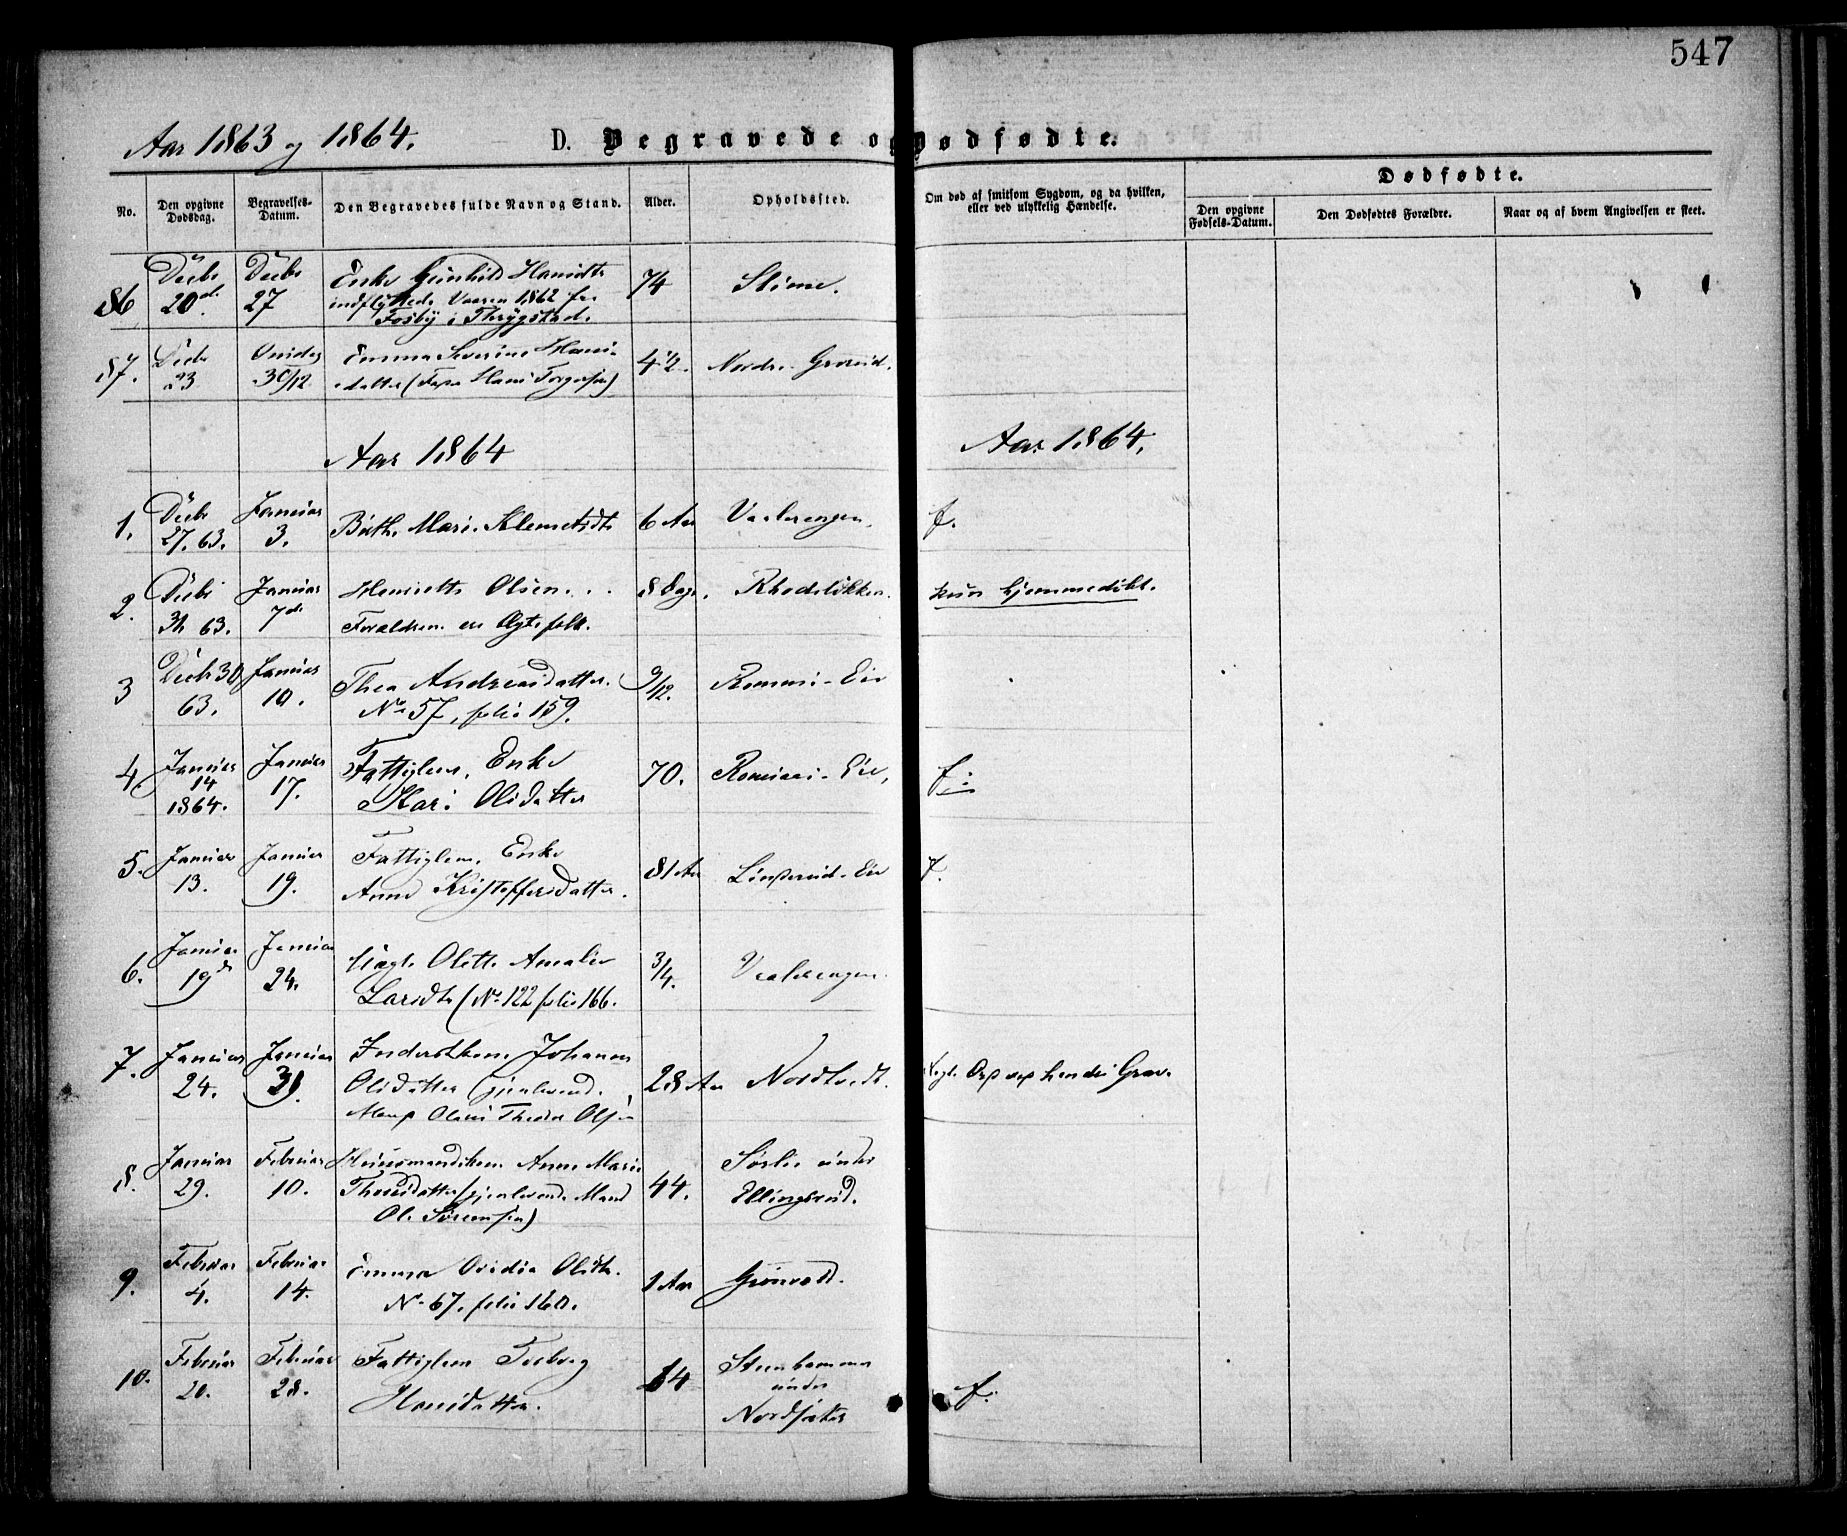 547
Aar 1863 og 1864.
D. Begravede og Dødfødte.
No.
Den opgivne Dødsdag.
Begravelses-Datum.
Den Begravedes fulde Navn og Stand.
Alder.
Opholdssted.
Om død af smitsom Sygdom, og da hvilken, eller ved ulykkelig Hændelse.
Dødfødte.
Den opgivne Fødsels-Datum.
Den Dødfødtes Forældre.
Naar og af hvem Angivelsen er skeet.
86 Decbr 20de Decbr 27 Enke Gunhild Hansdtr 74
indflyttede Vaaren 1862 fra
Fosby i Thrygstad.
87. Decbr 23 Onsdag 30/12 Emma Severine Hans-
datter (Fapa Hans Torgersen) 4 1/2. Nordre Grorud.
Aar 1864
Aar 1864.
1. Decbr 27. 63. Januar 3. Marie Klemetsdtr 6 Aar Vaalerengen. f.
2. Decbr 31 63. Januar 7de Henriette Olsen 8 Dage. Rhodeløkken. kun hjemmedøbt.
Forældrene er Ægtefolk.
3 Decbr 30 63. Januar 10. Thea Andreasdatter. 9/12. Rommen-Eie
No 57, folio 159.
4. Januar 14 1864. Januar 17. Fattiglem, Enke
Kari Olsdatter 70. Rommen-Eie, f.
5. Januar 13. Januar 19. Fattiglem, Enke
Anne Kristoffersdatter. 81 Aar Linderud-Eie f.
6. Januar 19de Januar 24. Uægte Olette Amalie
Larsdtr (No 122 folio 166. 3/4. Vaalerengen.
7. Januar 24. Januar 31. Inderstkone Johanne
Olsdatter (gjenlevende
Mand Olaus Theodor Olsen 28 Aar Nordtvedt. hendes Grav.
8. Januar 29. Februar 10. Huusmandskone Anne Marie
Thoresdatter (gjenlevende Mand
Ole Sørensen) 44. Sørlie under
Ellingsrud.
9. Februar 4. Februar 14. Emma Ovidia Olsdtr.
No 67. folio 160. 1 Aar Grønvold.
10. Februar 20. Februar 28. Fattiglem Torborg
Hansdatter. 64 Steenhammer
under
Nordsæter f.